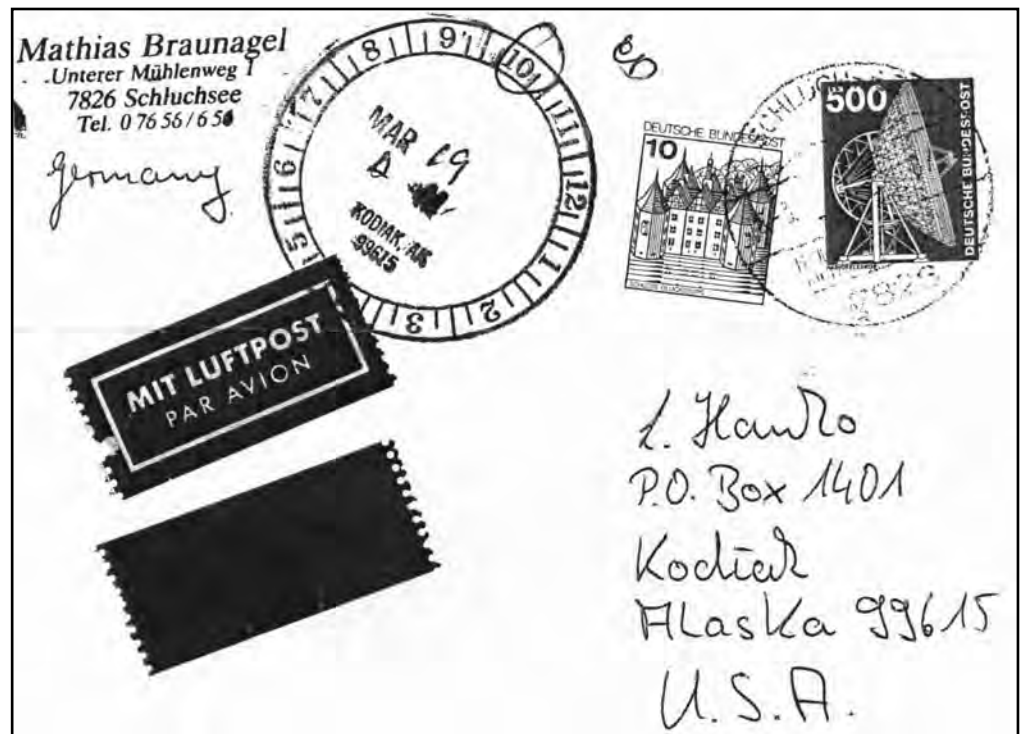 Mathias Braunagel
Unterer Mühlenweg 1
7826 Schluchsee
Tel. 0 76 56 / 6 5
Germany
5 6 7 8 9 10 11 12 1 2 3
MAR 19
A
KODIAK, AK
99615
DEUTSCHE BUNDESPOST
10
500
DEUTSCHE BUNDESPOST
7826
MIT LUFTPOST
PAR AVION
P.O. Box 1401
Kodiak
Alaska 99615
U.S.A.